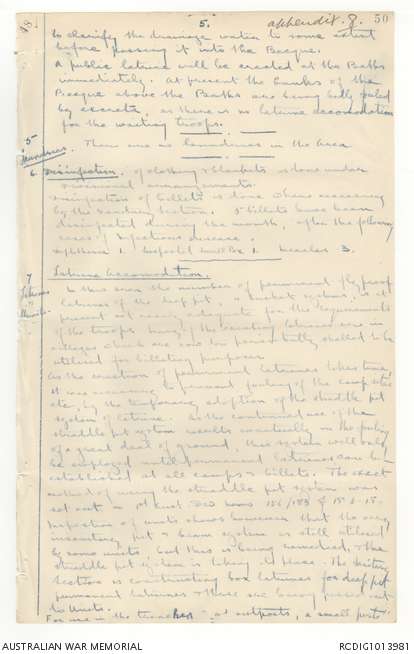 5. appendix. 8. 50
to clarify the drainage water to some extent
before passing it into the Becque.
A public latrine will be erected at the Baths
immediately. At present the banks of the
Becque above the Baths are being badly fouled
by excreta, as there is no latrine accomodation
for the waiting troops.
5
Laundries. There are no laundries in the area
6. Disinfection of clothing & blankets is done under
divisional arrangements.
Disinfection of billets is done when necessary
by the Sanitary Section. 5 billets have been
disinfected during the month, after the following
cases of infectious disease.
Diphtheria 1. Suspected 1. Measles 3.
7
Latrines
Latrine accomodation.
In this area the number of permanent fly proof
latrines of the deep pit, or bucket system, is at
present not nearly adequate for the requirements
of the troops. many of the existing latrines are in
villages which are now too persistently shelled to be
utilised for billeting purposes.
As the erection of permanent latrines takes time
it was necessary to prevent fouling of the camp sites
etc, by the temporary adoption of the straddle pit
system of latrine. As the continued use of the
straddle pit system results eventually in the fouling
of a great deal of ground, this system will only
be employed until permanent latrines can be
established at all camps & billets. The exact
method of using the straddle pit system was
set out in
Inspection of units shows however that the very
insanitary pit & beam system is still utilised
by some units, but this is being remedied, & the
straddle pit system is taking its place. The Sanitary
Section is constructing box latrines for deep pit
permanent latrines & these are being issued out
to Units.
For use in the trenches - at outposts, a small portable
AUSTRALIAN WAR MEMORIAL RCDIG1013981